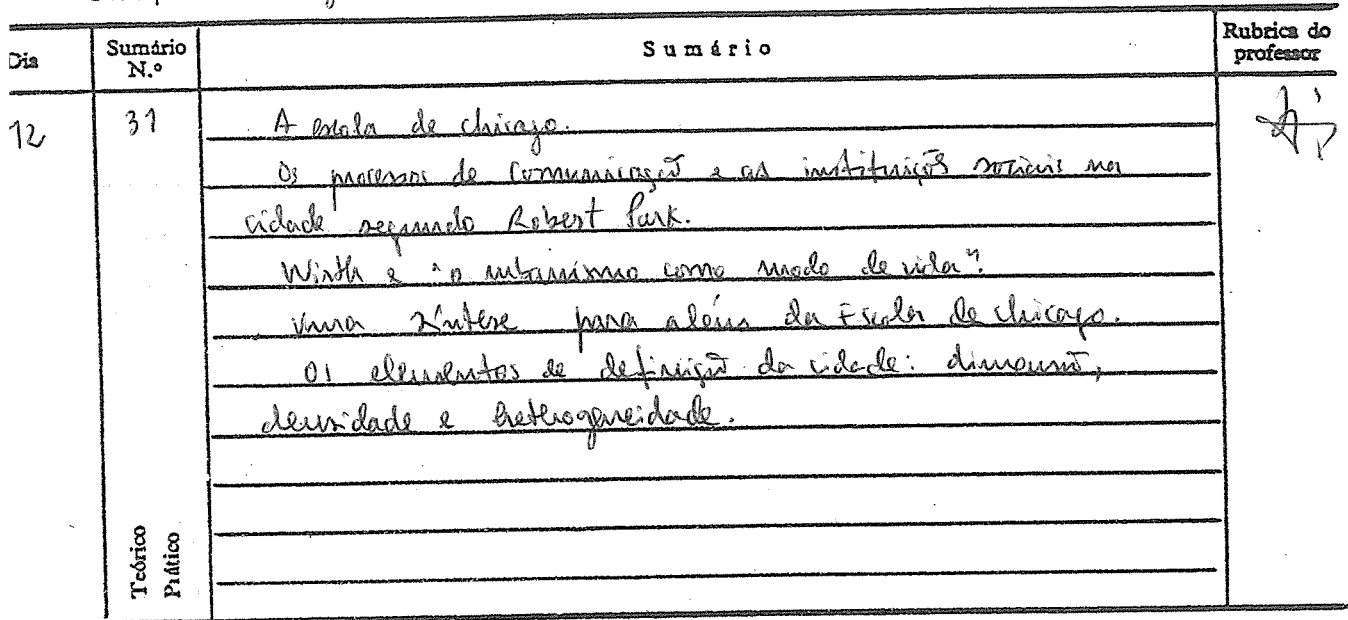 Dia Sumário N.º Sumário Rubrica do professor
12 31 A escola de chicago.
Os processos de comunicação e as instituições sociais na
cidade segundo Robert Park.
Wirth e "o urbanismo como modo de vida".
Uma síntese para além da Escola de chicago.
Os elementos de definição da cidade: dimensão,
densidade e heterogeneidade.
Teórico
Prático